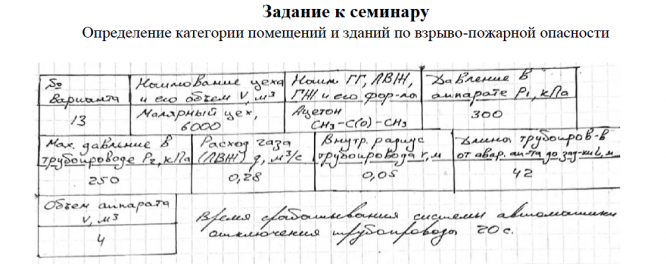 Задание к семинару
Определение категории помещений и зданий по взрыво-пожарной опасности
№ варианта
Наименование цеха и его объем V, м³
Наим. ГГ, ЛВЖ, ГЖ и его фор-ла
Давление в аппарате P₁, кПа
13
Малярный цех, 6000
Ацетон CH₃-C(O)-CH₃
300
Мах. давление в трубопроводе P₂, кПа
Расход газа (ЛВЖ) q, м³/с
Внутр. радиус трубопровода r, м
Длина трубопров-в от авар. ап-та до зад-ки L, м
250
0,28
0,05
42
Объем аппарата V, м³
4
Время срабатывания системы автоматики
отключения трубопровода 20 с.